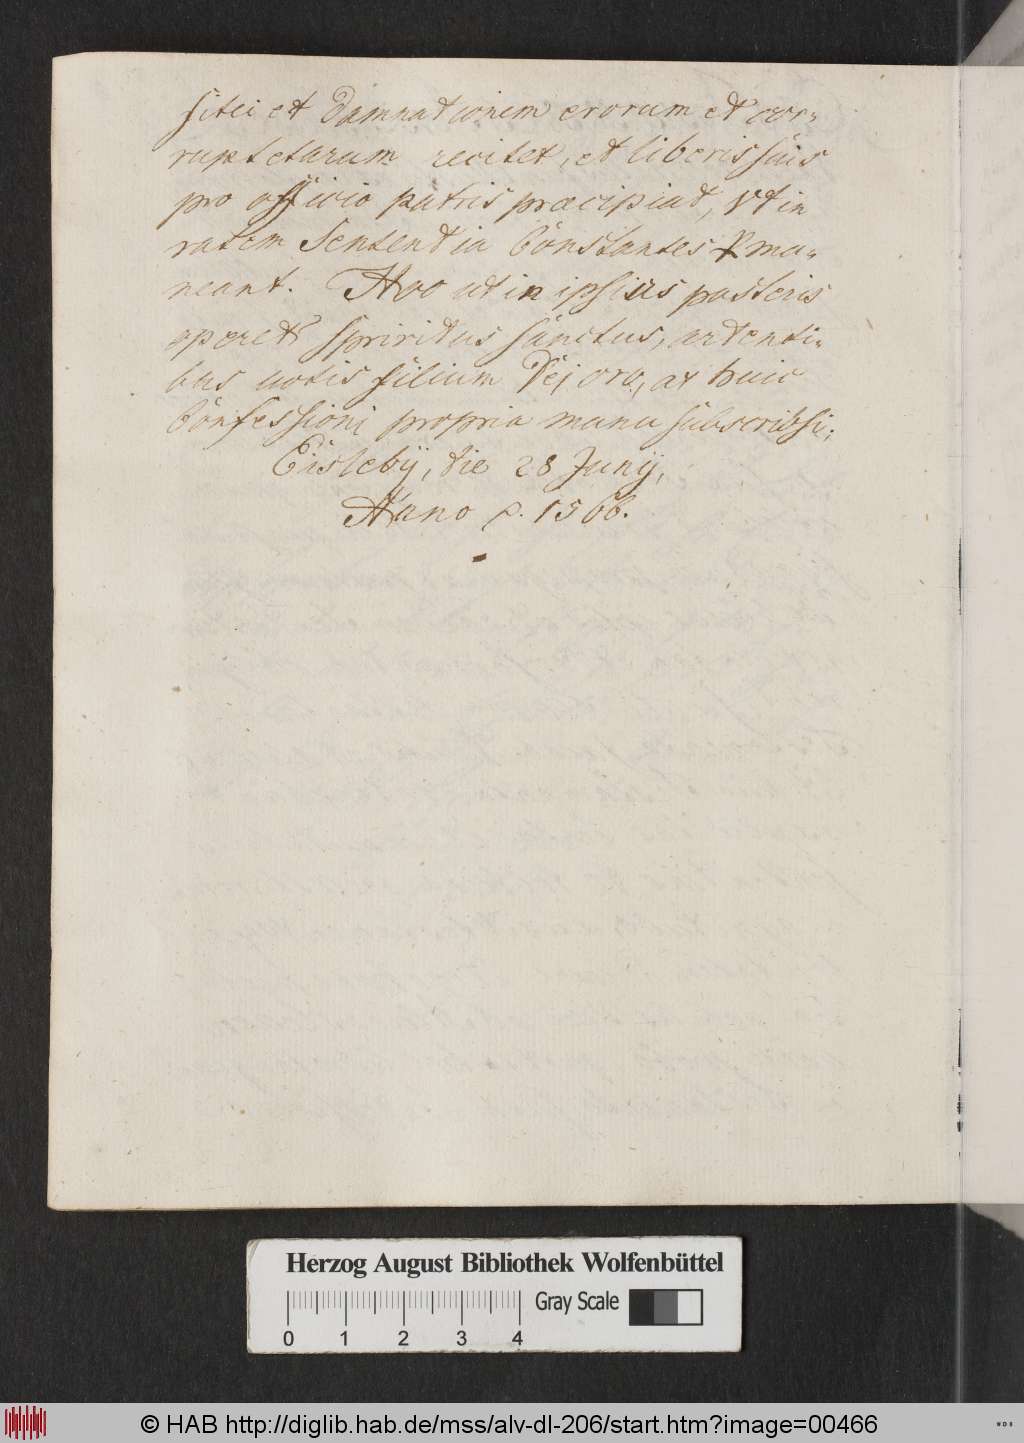 fitei et Damnationem erorum et cor-
ruptetarum recitet, et liberis suis
pro officio patris præcipiat, Vt in
ratem Sententia Constantes Pma-
neant. Hoc ut in ipsius posteris
operet Spriritus sanctus, ardenti-
bus uotis filium Dej oro, ac huic
Confessioni propria manu subscribsi;
Eislebÿ, die 28 Junÿ,
Anno p. 1566.
Herzog August Bibliothek Wolfenbüttel
Gray Scale
0 1 2 3 4
© HAB http://diglib.hab.de/mss/alv-dl-206/start.htm?image=00466